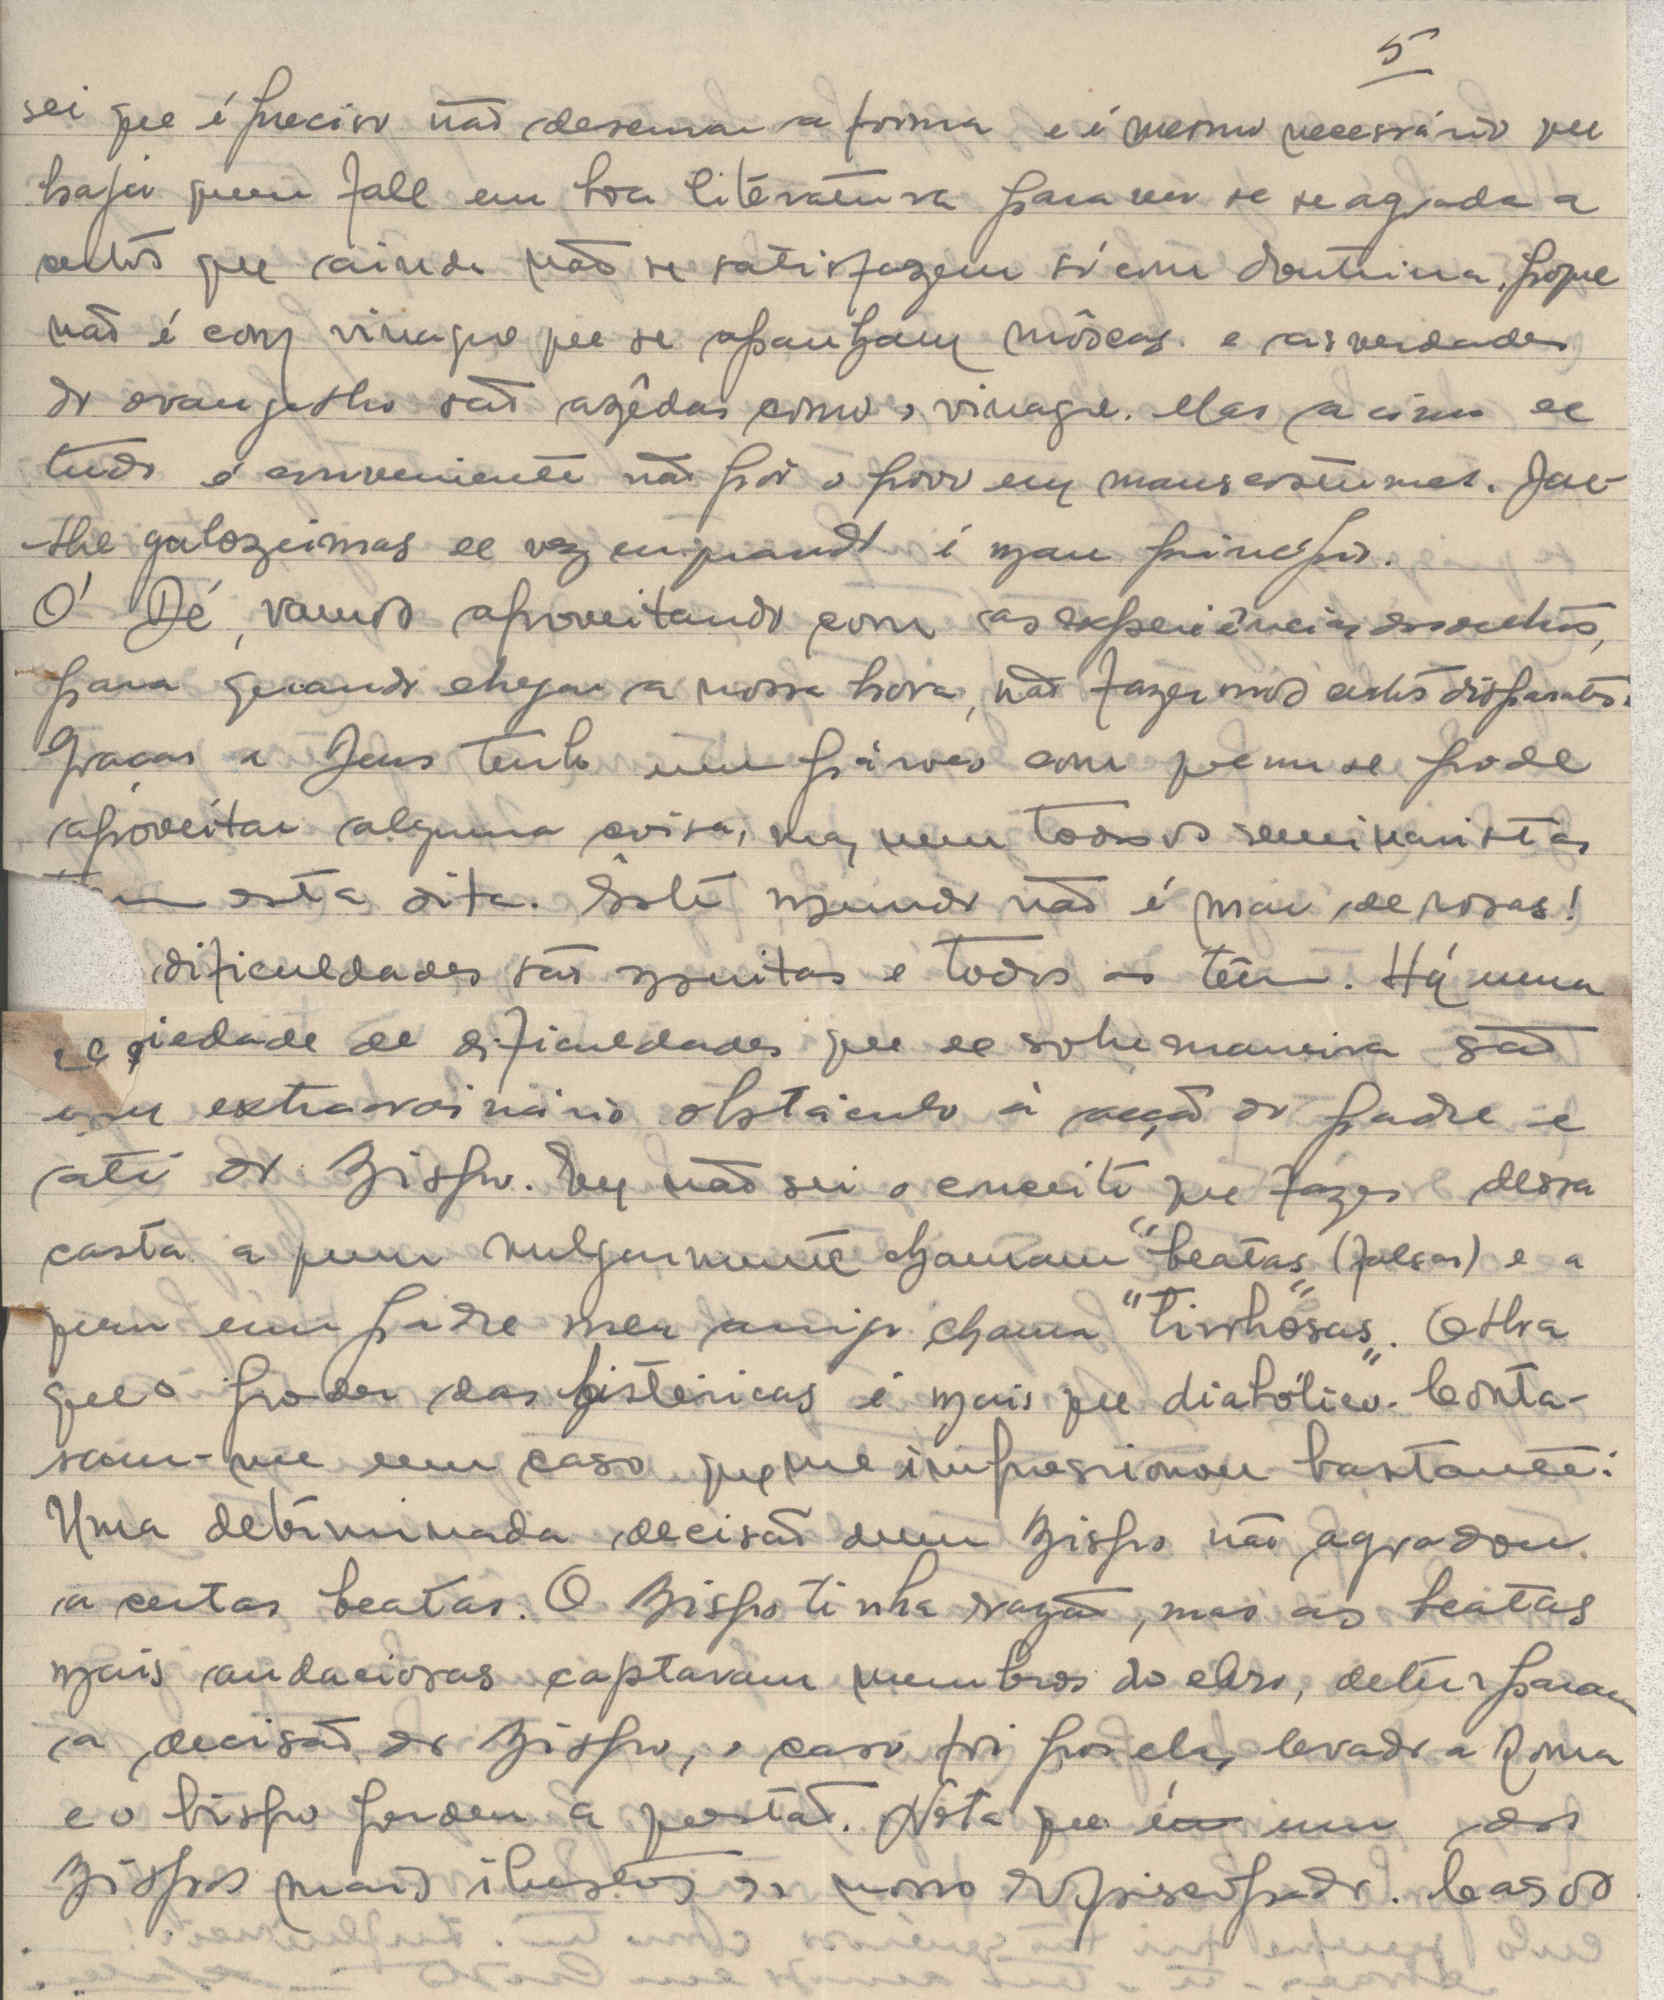 5
sei que é preciso não desenhar a forma e é mesmo necessário que
haja quem fale em boa literatura para ver se se agrada a
certos que ainda não se satisfazem só com doutrina, porque
não é com vinagre que se apanham môscas e as verdades
do evangelho são azêdas como o vinagre. Mas acima de
tudo é conveniente não pôr o povo em maus costumes. Dar-
-lhe gulozeimas de vez em quando é mau princípio.
Ó Dé, vamos aproveitando com as experiências dos outros,
para quando chegar a nossa hora, não fazermos certos disparates.
Graças a Deus tenho um pároco com quem se pode
aproveitar alguma coisa, mas nem todos os seminaristas
têm esta dita. Êste mundo não é mar de rosas!
dificuldades são muitas e todos as têm. Há uma
variedade de dificuldades que de sobremaneira são
um extraordinário obstáculo à acção do padre e
até do Bispo. Eu não sei o conceito que fazes dessa
casta a quem vulgarmente chamam "beatas" (falsas) e a
quem um padre meu amigo chama "tinhosas". Olha
que o poder das histéricas é mais que diabólico. Conta-
ram-me um caso que me impressionou bastante:
Uma determinada decisão dum Bispo não agradou
a certas beatas. O Bispo tinha razão, mas as beatas
mais audaciosas captavam membros do clero, deturparam
a decisão do Bispo, o caso foi por elas levado a Roma
e o bispo perdeu a questão. Nota que é um dos
Bispos mais ilustres do nosso Episcopado. Casos